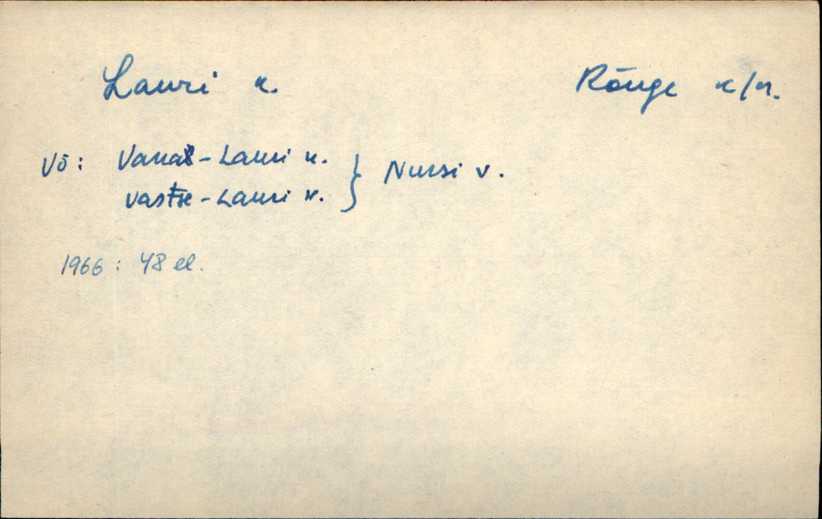 Lauri k. Rõuge k/n.
Võ: Vana-Lauri k. } Nursi v.
Vastse-Lauri k.
1966: 48 el.